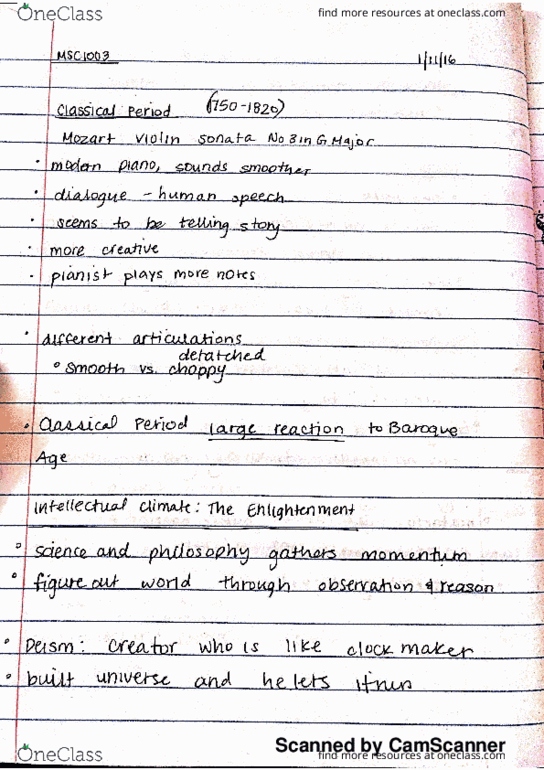 OneClass
find more resources at oneclass.com
MSC1003
1/11/16
Classical Period (1750-1820)
Mozart violin sonata No 3 in G Major
• modern piano, sounds smoother
• dialogue - human speech
• seems to be telling story
• more creative
• pianist plays more notes
• different articulations
detatched
° smooth vs. choppy
• Classical Period large reaction to Baroque
Age
Intellectual Climate: The Enlightenment
° science and philosophy gathers momentum
° figure out world through observation & reason
° Deism: creator who is like clock maker
° built universe and he lets it run
Scanned by CamScanner
OneClass
find more resources at oneclass.com